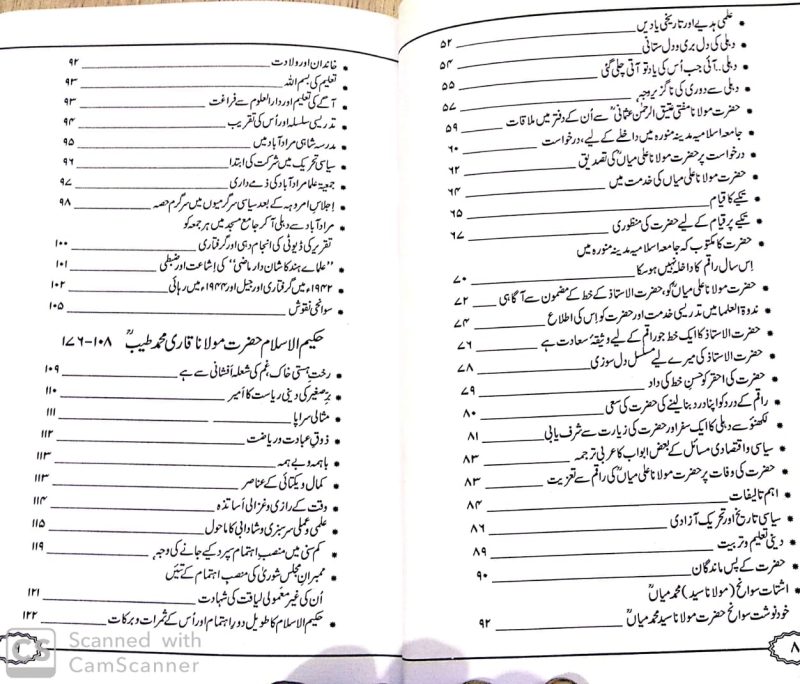 * علمی ہدیے اور تاریخی یادیں ۵۲
* دہلی کی دل بری و دل ستانی ۵۴
* دہلی.. آئی جب اُس کی یاد تو آتی چلی گئی ۵۵
* دہلی سے دوری کی ناگزیر وجہ ۵۷
* حضرت مولانا مفتی عتیق الرحمٰن عثمانیؒ سے اُن کے دفتر میں ملاقات ۵۹
* جامعہ اسلامیہ مدینہ منورہ میں داخلے کے لیے، درخواست ۶۰
* درخواست پر حضرت مولانا علی میاں کی تصدیق ۶۲
* حضرت مولانا علی میاںؒ کی خدمت میں ۶۴
* تکیے کا قیام ۶۵
* تکیے پر قیام کے لیے حضرت کی منظوری ۶۷
* حضرت کا مکتوب کہ جامعہ اسلامیہ مدینہ منورہ میں
اِس سال راقم کا داخلہ نہیں ہوسکا ۷۰
* حضرت مولانا علی میاںؒ کو، حضرت الاستاذ کے خط کے مضمون سے آگاہی ۷۲
* ندوۃ العلما میں تدریسی خدمت اور حضرت کو اِس کی اطلاع ۷۴
* حضرت الاستاذ کا ایک خط جو راقم کے لیے وثیقۂ سعادت ہے ۷۶
* حضرت الاستاذ کی میرے لیے مسلسل دل سوزی ۷۸
* حضرت کی احقر کو حسنِ خط کی داد ۷۹
* راقم کے درد کو اپنا درد بنا لینے کی حضرت کی سعی ۸۰
* لکھنؤ سے دہلی کا ایک سفر اور حضرت کی زیارت سے شرف یابی ۸۱
* سیاسی و اقتصادی مسائل کے بعض ابواب کا عربی ترجمہ ۸۳
* حضرت کی وفات پر حضرت مولانا علی میاںؒ کی راقم سے تعزیت ۸۳
* اہم تالیفات ۸۴
* سیاسی تاریخ اور تحریک آزادی ۸۶
* دینی تعلیم و تربیت ۸۹
* حضرت کے پس ماندگان ۹۰
* اشتات سوانح (مولانا سید) محمد میاںؒ
خود نوشت سوانح حضرت مولانا سید محمد میاںؒ ۹۲
۸
* خاندان اور ولادت ۹۲
* تعلیم کی بسم اللہ ۹۳
* آگے کی تعلیم اور دارالعلوم سے فراغت ۹۳
* تدریسی سلسلہ اور اُس کی تقریب ۹۴
* مدرسہ شاہی مرادآباد میں ۹۵
* سیاسی تحریک میں شرکت کی ابتدا ۹۶
* جمعیۃ علما مرادآباد کی ذمے داری ۹۷
* اجلاسِ امروہہ کے بعد سیاسی سرگرمیوں میں سرگرم حصہ ۹۸
* مرادآباد سے دہلی آکر جامع مسجد میں ہر جمعہ کو
تقریر کی ڈیوٹی کی انجام دہی اور گرفتاری ۱۰۰
* ’’علماے ہند کا شان دار ماضی‘‘ کی اِشاعت اور ضبطی ۱۰۱
* ۱۹۴۲ء میں گرفتاری اور جیل اور ۱۹۴۴ء میں رہائی ۱۰۲
* سوانحی نقوش ۱۰۵
حکیم الاسلام حضرت مولانا قاری محمد طیبؒ ۱۰۸-۱۷۶
* رختِ ہستی خاک، غم کی شعلہ افشانی سے ہے ۱۰۹
* برِّصغیر کی دینی ریاست کا اَمیر ۱۱۰
* مثالی سراپا ۱۱۱
* ذوقِ عبادت و ریاضت ۱۱۲
* باہمہ و بے ہمہ ۱۱۳
* کمال و یکتائی کے عناصر ۱۱۳
* وقت کے رازی و غزالی اَساتذہ ۱۱۴
* علمی و عملی سرسبزی و شادابی کا ماحول ۱۱۵
* کم سنی میں منصبِ اہتمام سپرد کیے جانے کی وجہ ۱۱۹
* ممبرانِ مجلسِ شوریٰ کی منصب اہتمام کے تئیں
اُن کی غیر معمولی لیاقت کی شہادت ۱۲۱
* حکیم الاسلام کا طویل دورِ اہتمام اور اُس کے ثمرات و برکات ۱۲۲
CS Scanned with
CamScanner